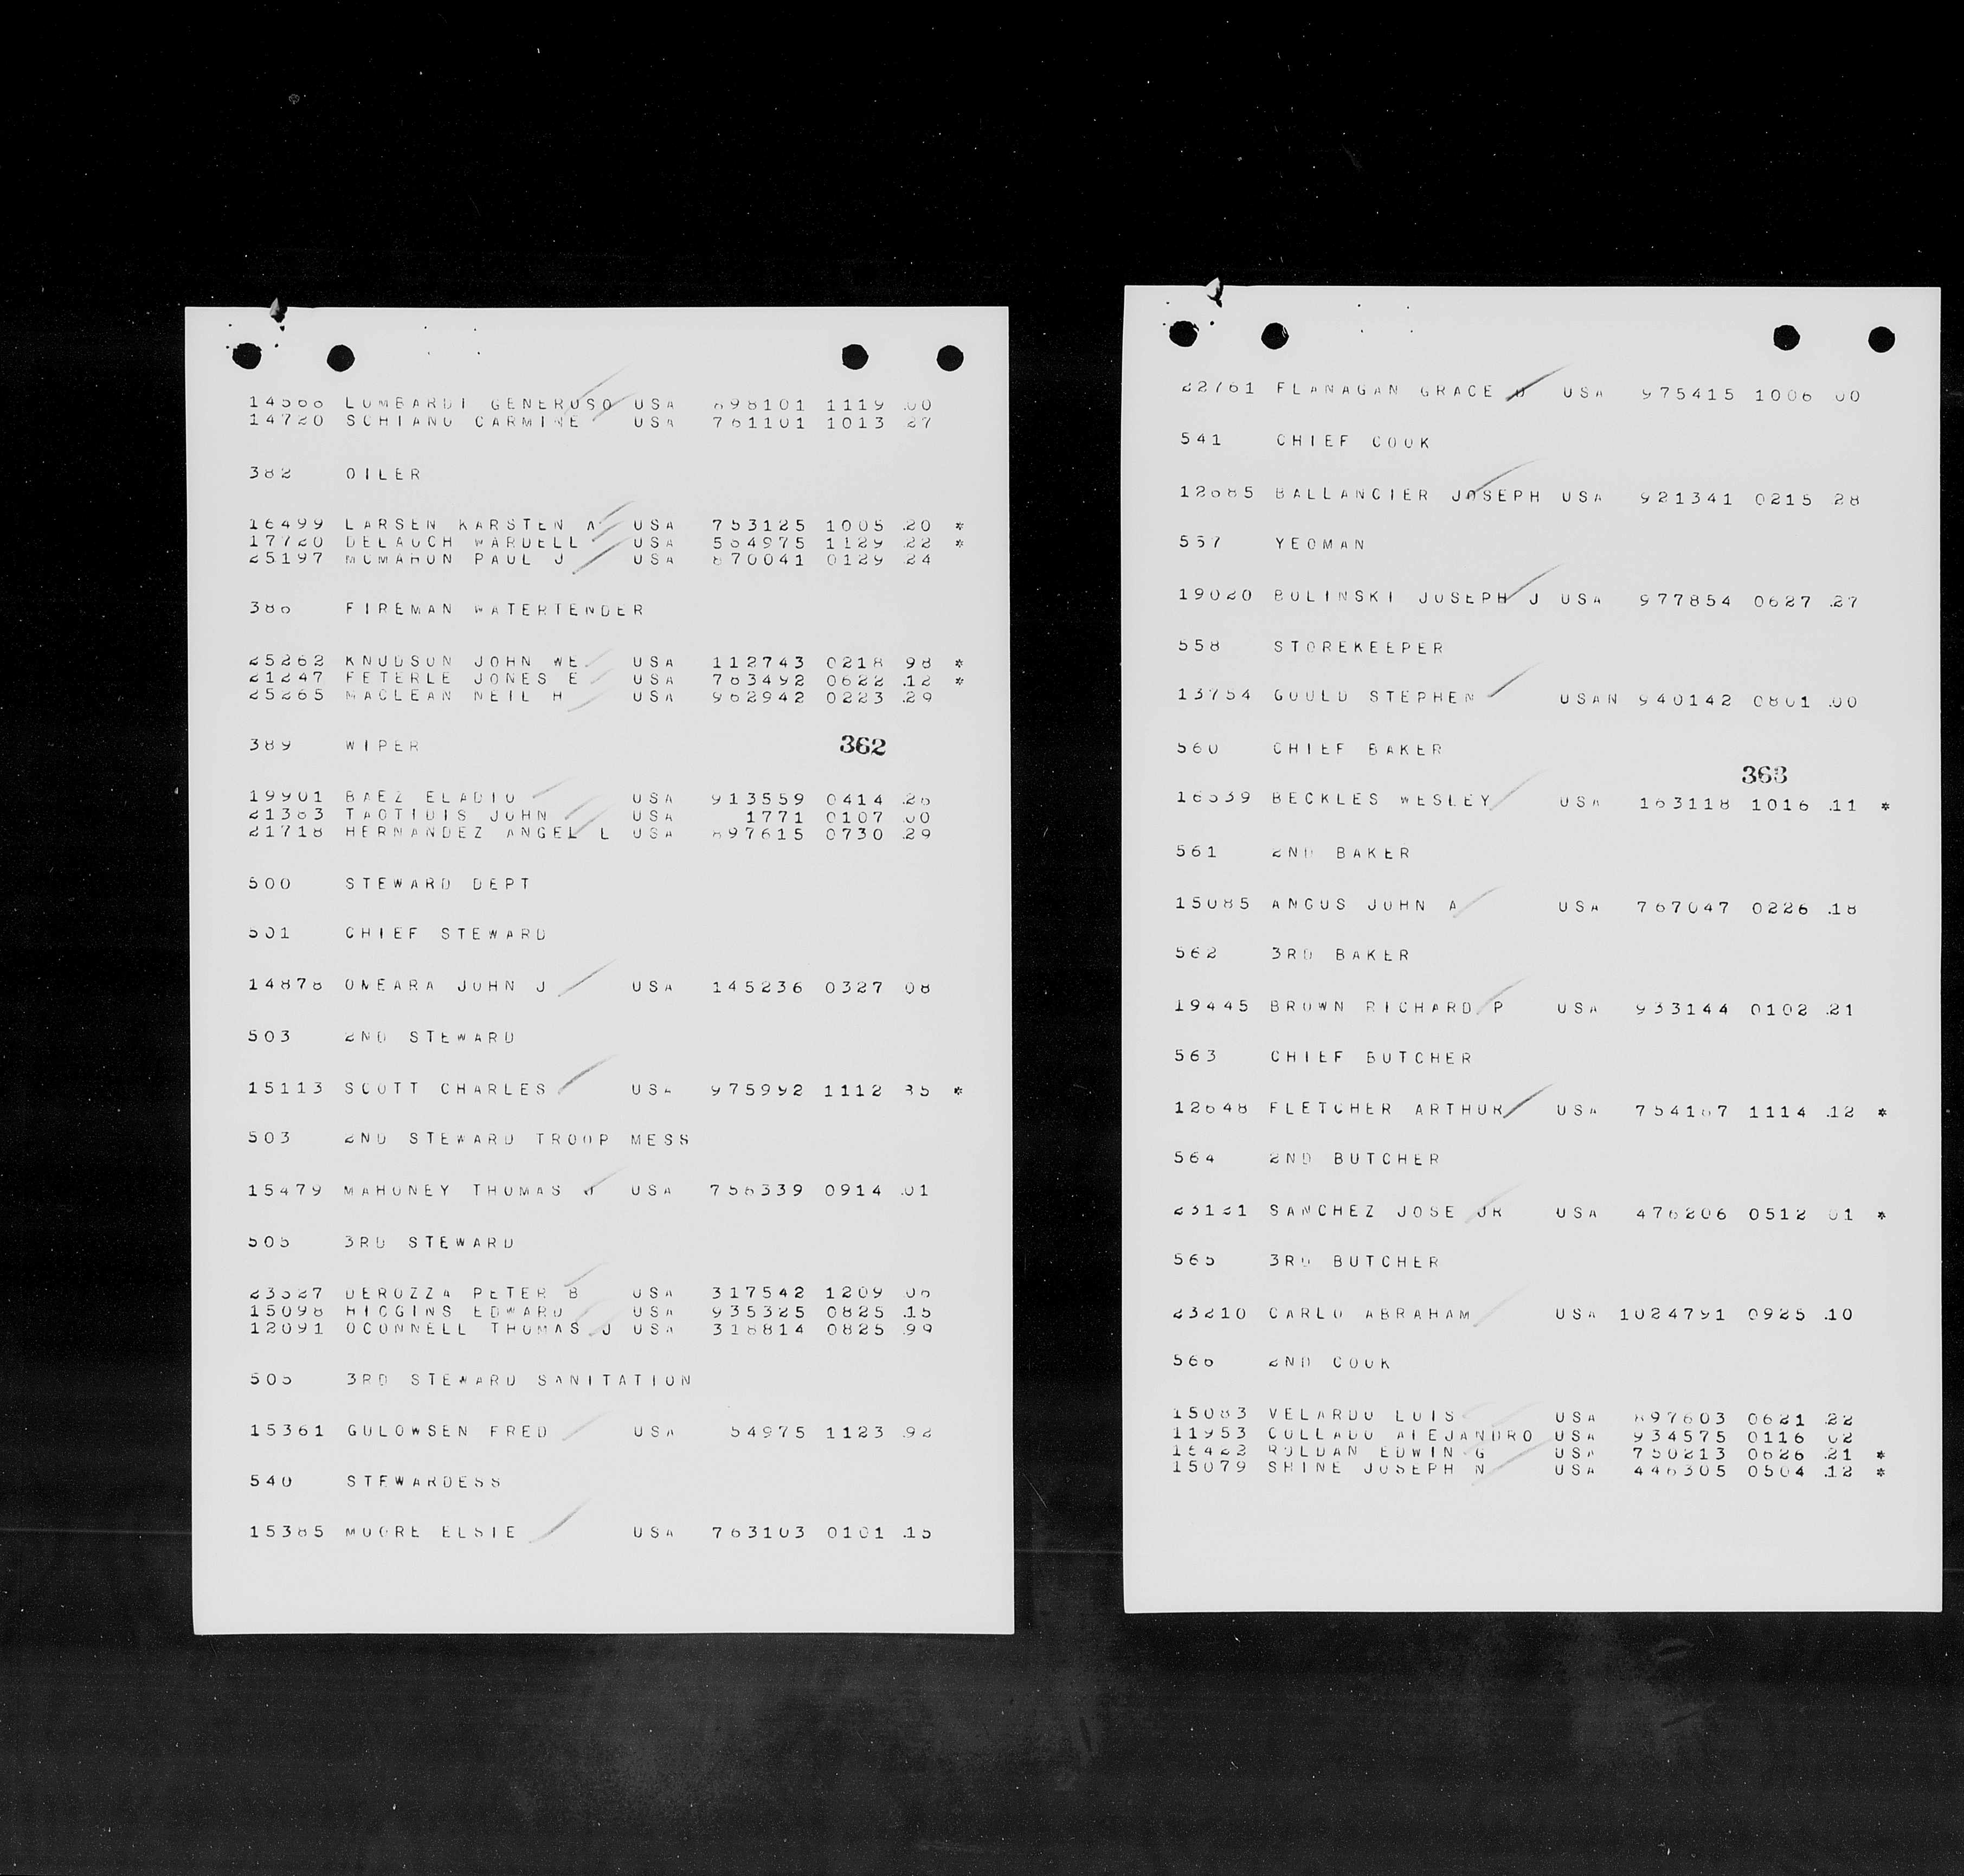 14566 LOMBARDI GENEROSO USA 898101 1119 .00
14720 SCHIANO CARMINE USA 761101 1013 27
382 OILER
16499 LARSEN KARSTEN A USA 753125 1005 .20 *
17720 DELAUCH WARDELL USA 564975 1129 .22 *
25197 MCMAHON PAUL J USA 870041 0129 24
386 FIREMAN WATERTENDER
25262 KNUDSON JOHN WE USA 112743 0218 98 *
21247 FETERLE JONES E USA 763492 0622 .12 *
25265 MACLEAN NEIL H USA 962942 0223 .29
389 WIPER
362
19901 BAEZ ELADIO USA 913559 0414 .26
21383 TAOTIDIS JOHN USA 1771 0107 .00
21718 HERNANDEZ ANGEL L USA 897615 0730 .29
500 STEWARD DEPT
501 CHIEF STEWARD
14878 OMEARA JOHN J USA 145236 0327 08
503 2ND STEWARD
15113 SCOTT CHARLES USA 975992 1112 35 *
503 2ND STEWARD TROOP MESS
15479 MAHONEY THOMAS J USA 756339 0914 .01
505 3RD STEWARD
23527 DEROZZA PETER B USA 317542 1209 .06
15098 HIGGINS EDWARD USA 935325 0825 .15
12091 OCONNELL THOMAS J USA 318814 0825 .99
505 3RD STEWARD SANITATION
15361 GULOWSEN FRED USA 54975 1123 .92
540 STEWARDESS
15385 MOORE ELSIE USA 763103 0101 .15
22761 FLANAGAN GRACE USA 975415 1006 00
541 CHIEF COOK
12685 BALLANCIER JOSEPH USA 921341 0215 28
557 YEOMAN
19020 BOLINSKI JOSEPH J USA 977854 0627 .27
558 STOREKEEPER
13754 GOULD STEPHEN USAN 940142 0801 .00
560 CHIEF BAKER
363
16539 BECKLES WESLEY USA 163118 1016 .11 *
561 2ND BAKER
15085 ANGUS JOHN A USA 767047 0226 .18
562 3RD BAKER
19445 BROWN RICHARD P USA 933144 0102 .21
563 CHIEF BUTCHER
12648 FLETCHER ARTHUR USA 754167 1114 .12 *
564 2ND BUTCHER
23121 SANCHEZ JOSE JR USA 476206 0512 01 *
565 3RD BUTCHER
23210 CARLO ABRAHAM USA 1024791 0925 .10
566 2ND COOK
15083 VELARDO LUIS USA 897603 0621 .22
11953 COLLADO ALEJANDRO USA 934575 0116 02
16422 ROLDAN EDWIN G USA 750213 0626 .21 *
15079 SHINE JOSEPH N USA 446305 0504 .12 *